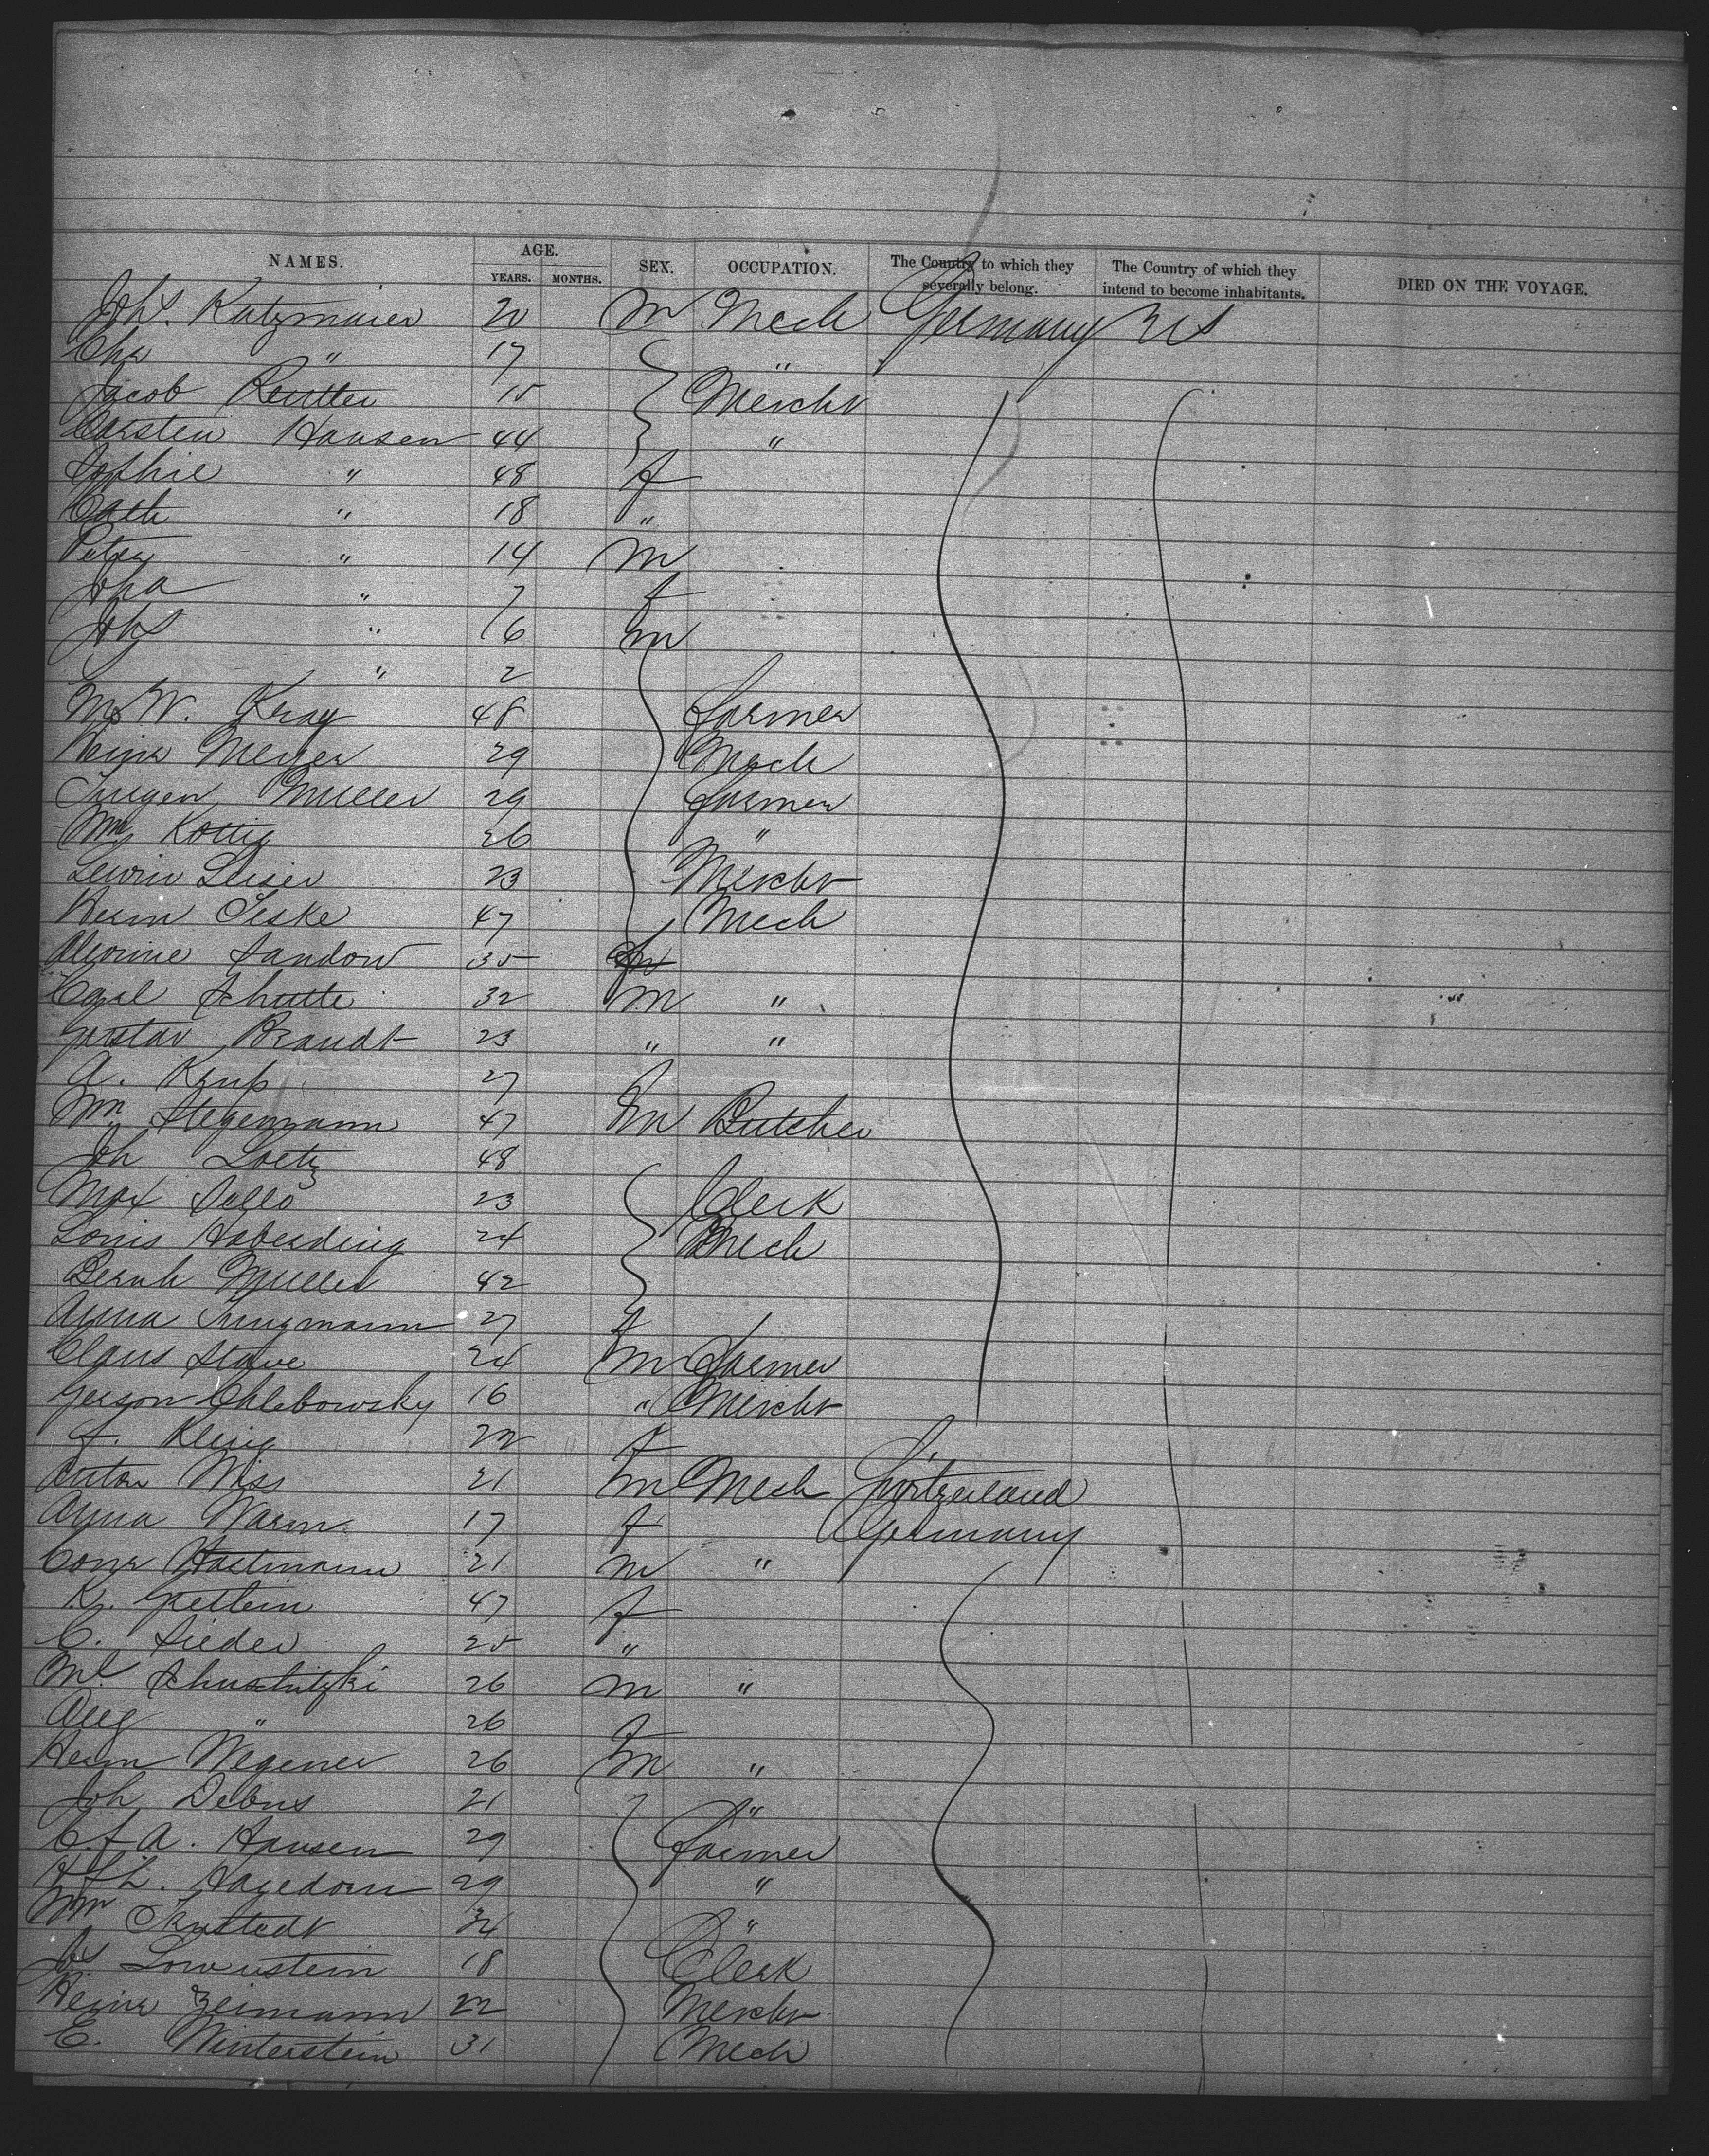 NAMES. AGE. YEARS. MONTHS. SEX. OCCUPATION. The Country to which they severally belong. The Country of which they intend to become inhabitants. DIED ON THE VOYAGE.
Johs. Katzmaier 20 M Mech Germany US
Chr " 17 "
Jacob Reutter 15 Mercht
Carsten Hansen 44 "
Sophie " 48 f
Cath " 18 "
Peter " 14 M
Joha " 7 f
Johs " 6 m
" 2
M. W. Kray 48 Farmer
Heinr Meyer 29 Mech
Jurgen Muller 29 Farmer
Wm Kottig 26 "
Lewin Leiser 23 Mercht
Herm Teske 47 Mech
Alwine Sandow 35 f
Carl Schutte 32 M "
Gustav Brandt 23 " "
A. Krup 27 f
Wm Stegemann 47 M Butcher
Joh Loetz 48
Max Sello 23 Clerk
Louis Haberding 24 Mech
Bernh Muller 42
Anna Jungmann 27 f
Claus Stave 24 M Farmer
Gerson Chlebowsky 16 " Mercht
F. Kleing 22 f
Anton Wiss 21 M Mech Switzerland
Anna Warm 17 f Germany
Conr Hartmann 21 M "
K. Gpettein 47 f
C. Sieder 25 "
Ml Schustitzki 26 M "
Aug " 26 f
Herm Wegener 26 M "
Joh Debus 21 "
C. F. A. Hansen 29 Farmer
H. F. L. Hagedorn 29 "
Wm Trustedt 34 "
Js Lowenstein 18 Clerk
Heinr Zeimann 22 Mercht
E. Winterstein 31 Mech